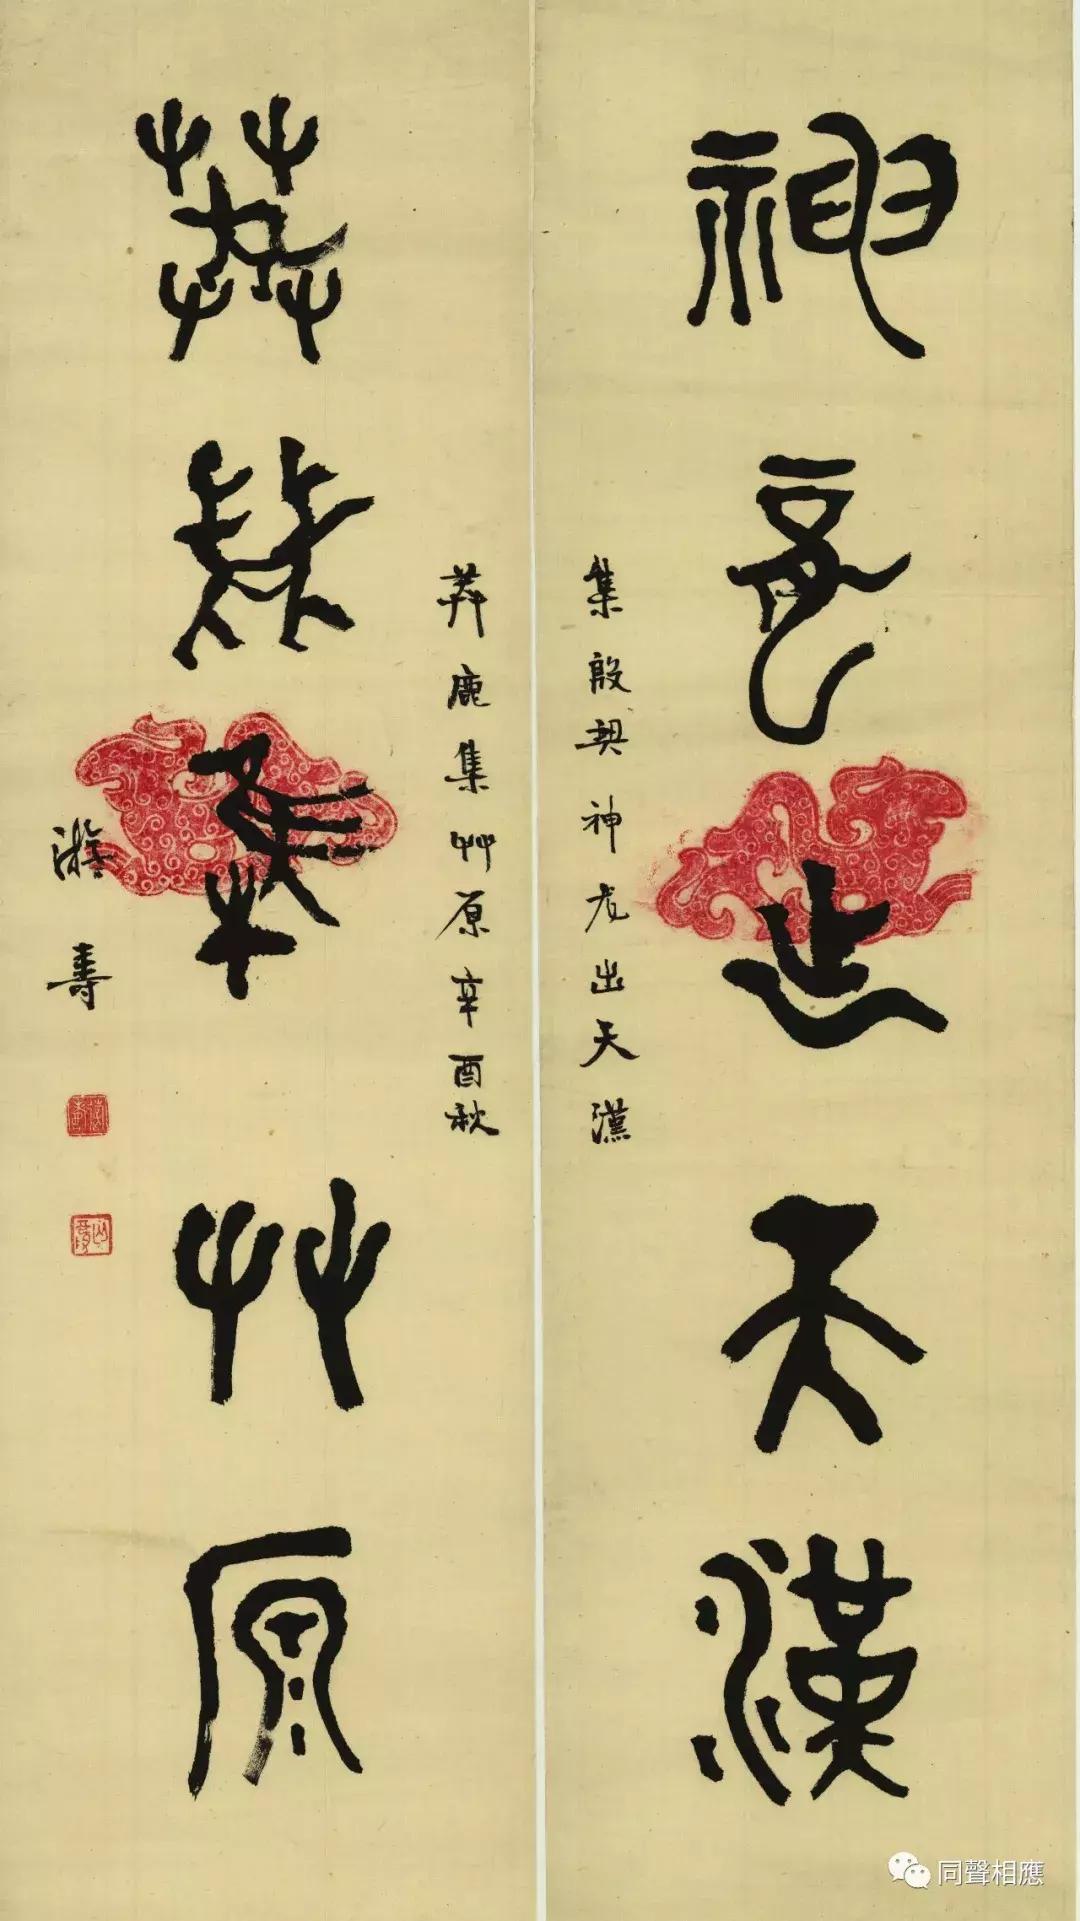 神龍出天漢
集殷契神龙出天漢
莽鹿集艸原
莽鹿集艸原辛酉秋
游寿
同聲相應